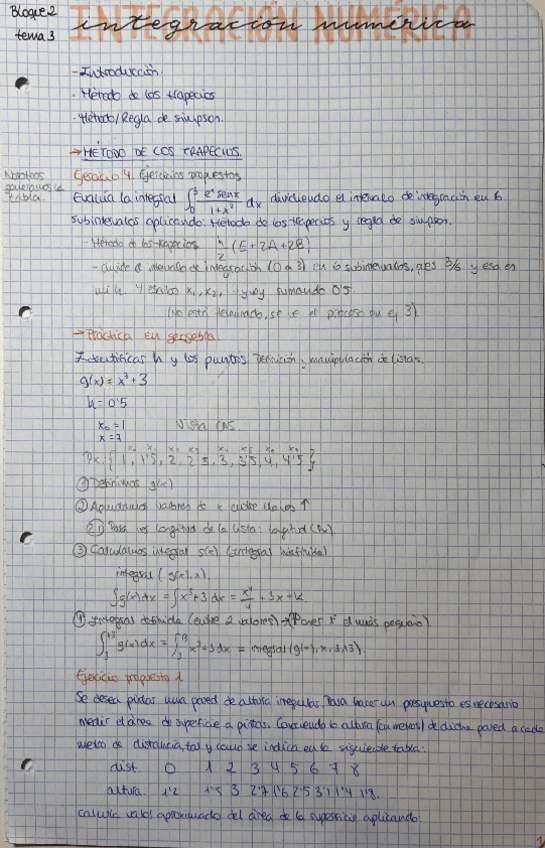 Bloque 2
tema 3
INTEGRACIÓN NUMÉRICA
integración numérica
- Introducción.
- Método de los trapecios
- Método/Regla de simpson.
→ MÉTODO DE LOS TRAPECIOS.
Nosotros
la
tabla.
Ejercicio 4. Ejercicios propuestos
Evalúa la integral ∫₀³ eˣ senx / 1+x² dx dividiendo el intervalo de integración en 6
subintervalos aplicando: Método de los trapecios y regla de simpson.
- Método de los trapecios h/2 (E+2A+2B)
- intervalo de integración (0 a 3) en 6 subintervalos, 3/6 y esa es
mi h. x₁, x₂, sumando 0'5.
(No está terminado, se ve el proceso en ej 3).
→ Práctica en geogebra.
Identificas h y los puntos Definición y manipulación de listas.
g(x) = x³ + 3
h = 0'5
x₀ = 1 Vista CAS.
x = 7
Px: { 1, 1'5, 2, 2'5, 3, 3'5, 4, 4'5 }
① Definimos g(x)
② valores de x entre llaves ↑
②.1 Para ver longitud de la lista: longitud (Px)
③ Calculamos integral g(x) (integral indefinida)
integral (g(x), x).
∫g(x)dx = ∫x³+3 dx = x⁴/4 + 3x + k
④ Integral definida (entre 2 valores) → (Pones 1º el más pequeño)
∫₃¹³ g(x)dx = ∫₃¹³ x³+3 dx = integral (g(x), x, 3, 13).
Ejercicio propuesto 1
Se desea pintar una pared de altura irregular. Para hacer un presupuesto es necesario
medir el área de superficie a pintar. Conociendo la altura (en metros) de dicha pared a cada
metro de distancia, tal y como se indica en la siguiente tabla:
dist. 0 1 2 3 4 5 6 7 8
altura 1'2 1'5 3 2'7 1'6 2'5 3'1 1'4 1'8.
calcula valor aproximado del área de la superficie aplicando:
1